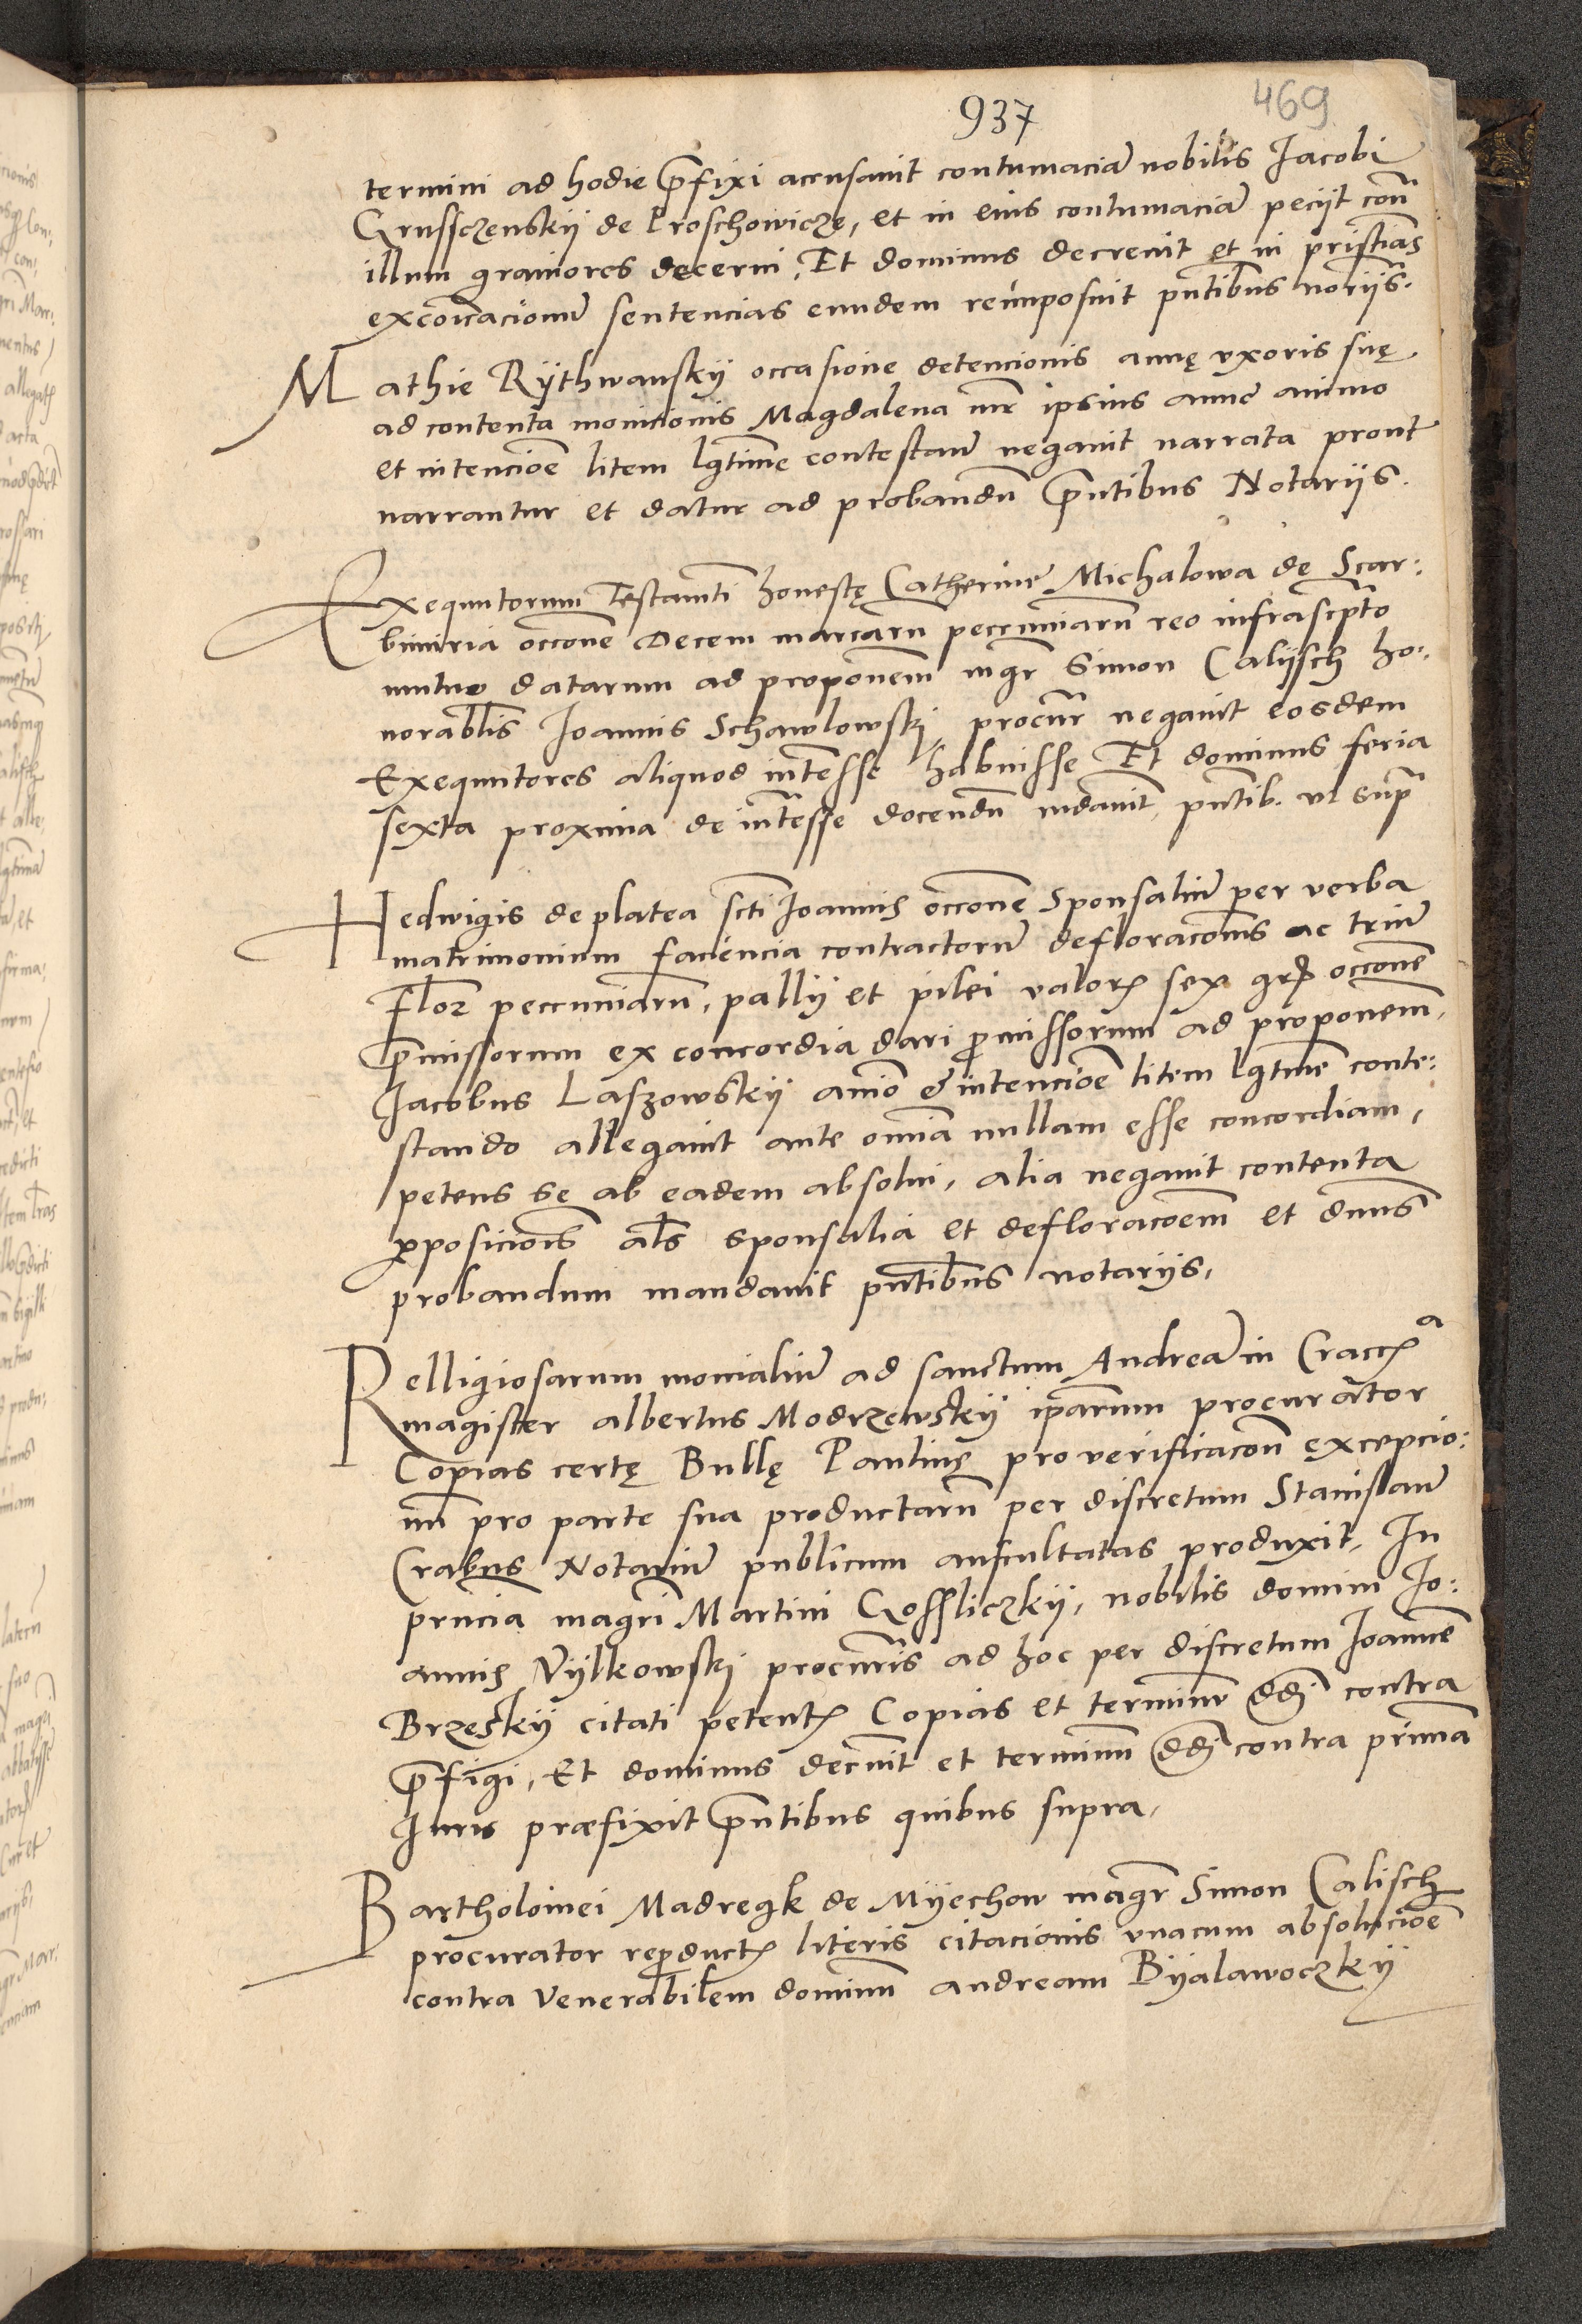 937
469
termini ad hodie p̄fixi accusauit contumaciā nobilis Jacobi
Grussczenskÿ de Proschowicze, et in eius contumaciā peciÿt cont̄
illum grauiores decerni, Et dominus decreuit et in pristias
excōicacionū sentencias eundem reimposuit pn̄tibus nōriÿs.
Mathie Rÿthwanskÿ occasione detencionis annę vxoris suę
ad contenta monicionis Magdalena mr̄ ipsius anne animo
et intencioē litem lgtīme contestan̄ negauit narrata prout
narrantur et datur ad probandū p̄ntibus Notariÿs.
Exequutorum Testam̄ti honestę Catherine Michalowa de Scar:
bimiria occōne Decem marcarū peccuniarū reo infrascp̄to
mutuo datarum ad proponem mgr Simon Calÿsch ho:
norabl̄is Joannis Schawlowskj procur̄ negauit eosdem
Exequutores aliquod int̄esse habuisse Et dominus feria
sexta proxima de int̄esse docendū mdauit, pn̄tib. vt supr̄
Hedwigis de platea sc̄ti Joannis occōne Sponsaliū per verba
matrimonium faciencia contractorū defloracōnis ac triū
Flor peccuniarū, palliÿ et pilei valor sex gr occōne
p̄missorum ex concordia dari p̄missorum ad proponem,
Jacobus Laszowskÿ anīo & intencioē litem lgtīme conte:
stando allegauit ante omīa nullam esse concordiam,
petens se ab eadem absolui, alia negauit contenta
p̄posiciōis al̄s sponsalia et defloracoēm et dnūs
probandum mandauit pn̄tibus notariÿs,
Relligiosarum monialiū ad sanctum Andreā in Craccᵃ
magister albertus Modrzewskÿ ip̄arum procurator
Copias certę Bullę Paulinę pro verificacoñ excepcio:
nū pro parte sua productarū per discretum Stanislaū
Crabus Notariū publicum auscultatas produxit, In
prn̄cia magrī Martini Gossliczkÿ, nobilis domini Jo:
annis Vÿlkowskj procur̄is ad hoc per discretum Joannē
Brzeskÿ citati petent Copias et terminū dd contra
p̄figi, Et dominus decr̄uit et terminū dd contra primā
Juris præfixit p̄ntibus quibus supra,
Bartholomei Madregk de Mÿechow magr̄ Simon Calisch
procurator rep̄duct literis citacionis vnacum absolucioē
contra Venerabilem dominū andream Bÿalawoczkÿ